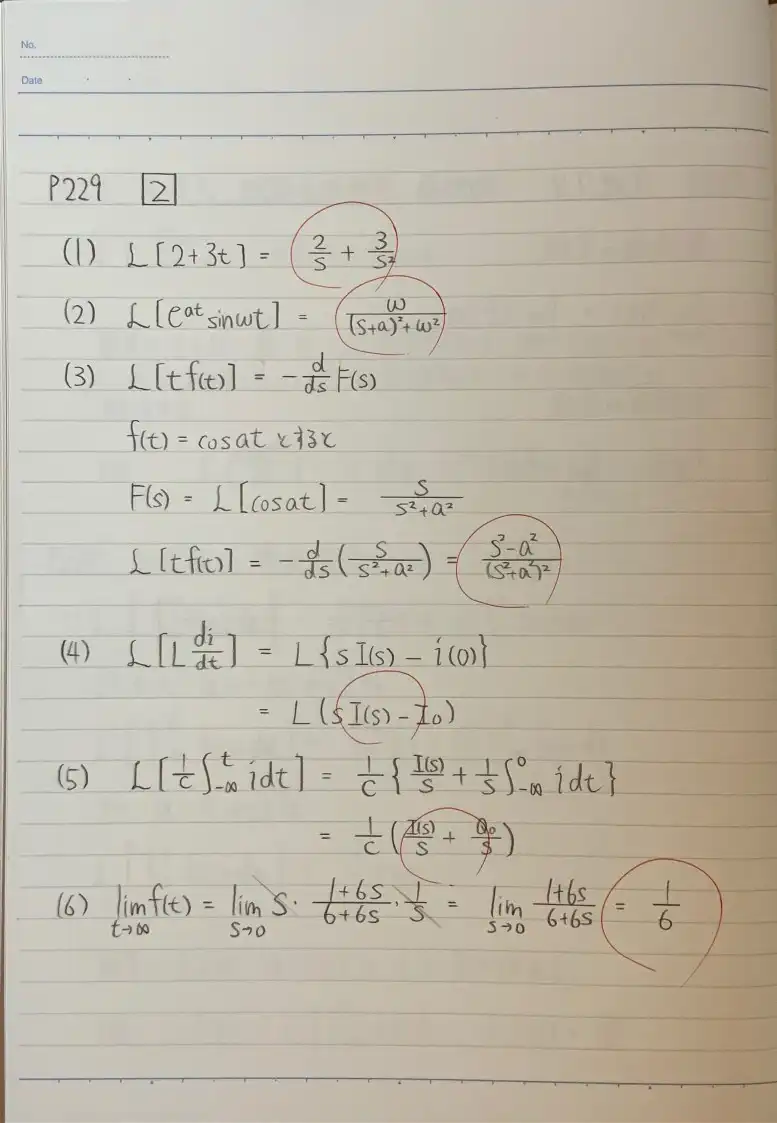 No.
Date
P229 2
(1) L[2+3t] = 2/s + 3/s²
(2) L[e^at sinωt] = ω/((s+a)²+ω²)
(3) L[tf(t)] = -d/ds F(s)
f(t) = cosat とすると
F(s) = L[cosat] = s/(s²+a²)
L[tf(t)] = -d/ds(s/(s²+a²)) = (s²-a²)/(s²+a²)²
(4) L[L di/dt] = L{sI(s) - i(0)}
= L(sI(s) - I₀)
(5) L[1/C ∫_-∞^t idt] = 1/C {I(s)/s + 1/s ∫_-∞^0 idt}
= 1/C (I(s)/s + Q₀/s)
(6) lim_t→∞ f(t) = lim_s→0 s · (1+6s)/(6+6s) · 1/s = lim_s→0 (1+6s)/(6+6s) = 1/6